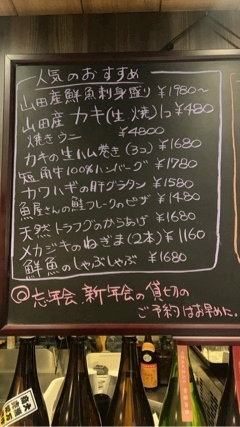 人気のおすすめ
山田産鮮魚刺身盛り ¥1980～
山田産 カキ(生・焼)1コ ¥480
焼きウニ ¥4800
カキの生ハム巻き(3コ) ¥1680
短角牛100%ハンバーグ ¥1780
カワハギの肝グラタン ¥1580
魚屋さんの鮭フレークのピザ ¥1480
天然トラフグのからあげ ¥1680
メカジキのねぎま(2本) ¥1160
鮮魚のしゃぶしゃぶ ¥1680
◎忘年会 新年会の貸切の
ご予約はお早めに。